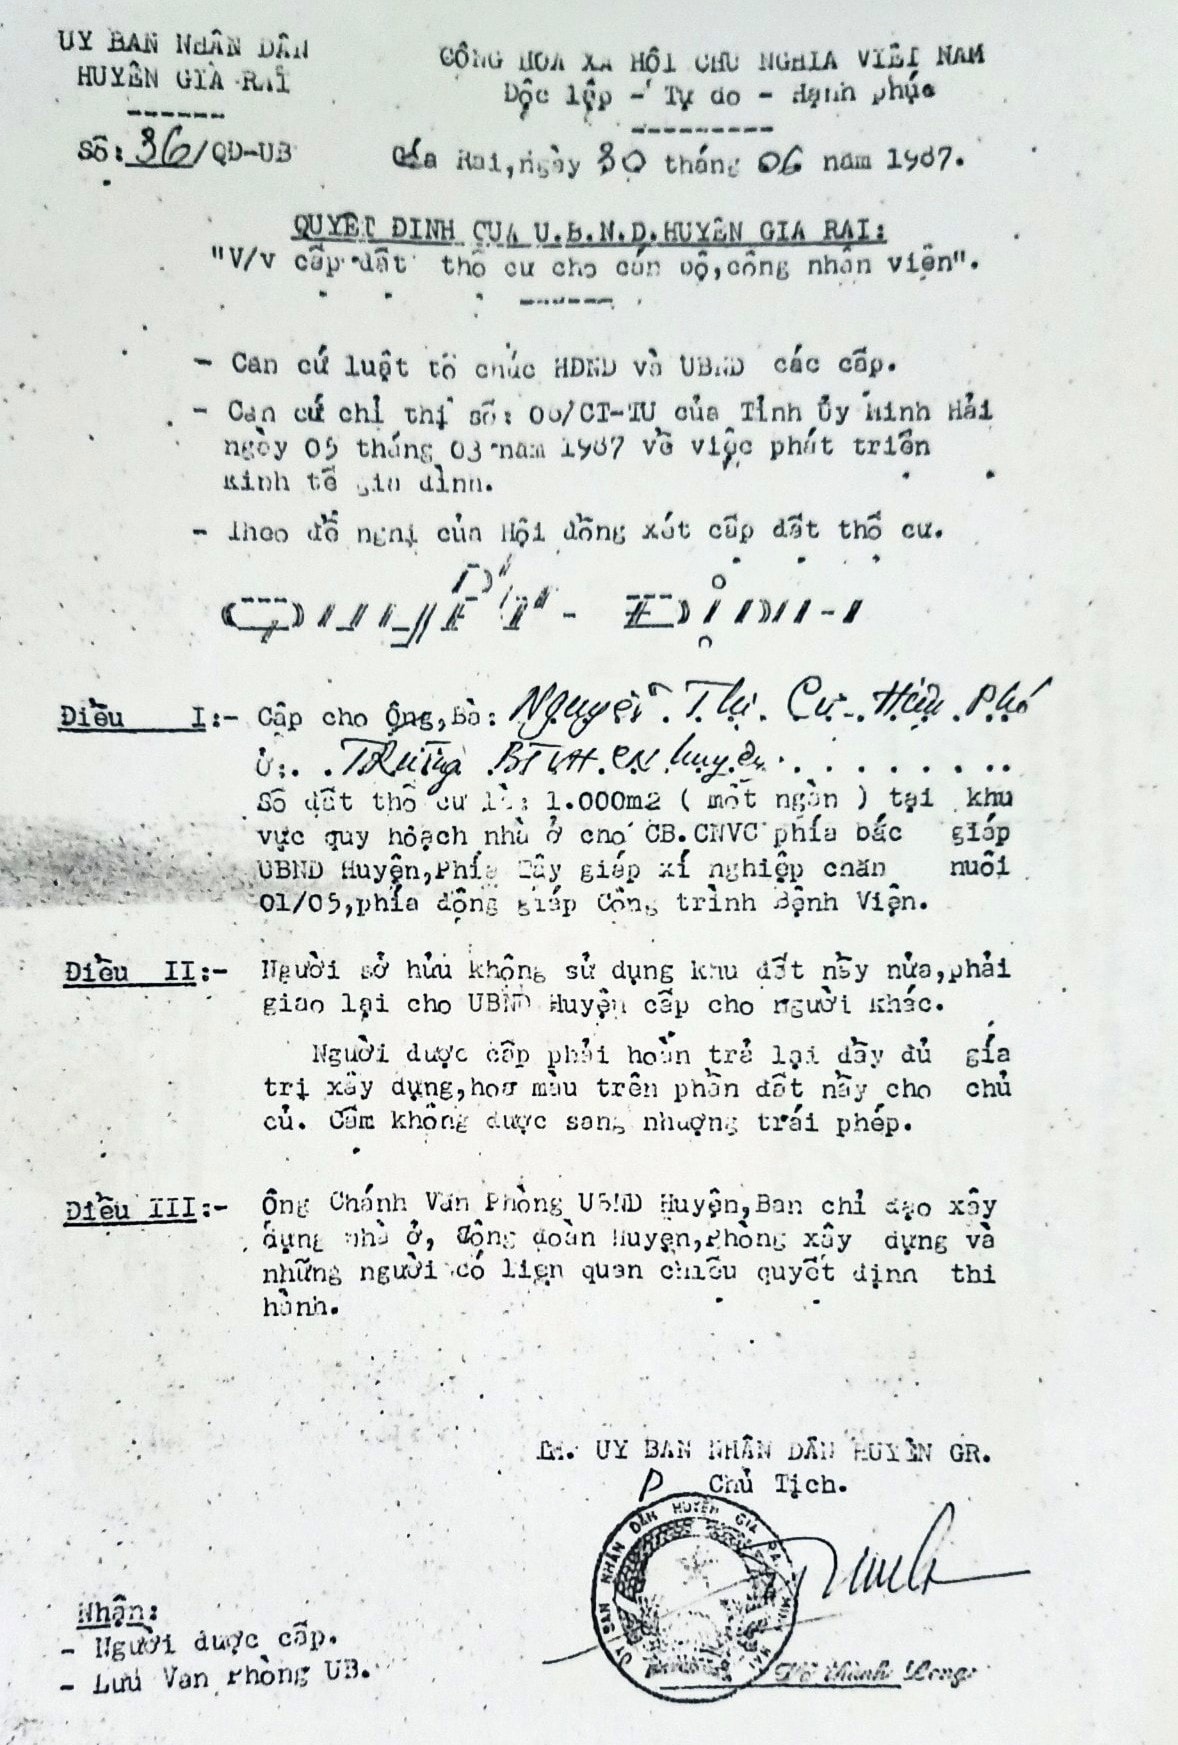 UY BAN NHÂN DÂN
HUYÊN GIÁ RAI
CỘNG HÒA XÃ HỘI CHỦ NGHĨA VIỆT NAM
Độc lập - Tự do - Hạnh phúc
Số: 36/QD-UB
Giá Rai, ngày 30 tháng 06 năm 1987.
QUYẾT ĐỊNH CỦA U.B.N.D.HUYỆN GIÁ RAI:
"V/v cấp đất thổ cư cho cán bộ, công nhân viên".
- Căn cứ luật tổ chức HĐND và UBND các cấp.
- Căn cứ chỉ thị số: 06/CT-TU của Tỉnh Ủy Minh Hải
ngày 05 tháng 03 năm 1987 về việc phát triển
kinh tế gia đình.
- Theo đề nghị của Hội đồng xét cấp đất thổ cư.
QUYẾT - ĐỊNH
Điều I:- Cấp cho Ông, Bà: Nguyễn Thị Cư Hiệu Phó
Ở: Trường BTVH CN huyện
Số đất thổ cư là: 1.000m2 ( một ngàn ) tại khu
vực quy hoạch nhà ở cho CB.CNVC phía bắc giáp
UBND Huyện, Phía Tây giáp xí nghiệp chăn nuôi
01/05, phía đông giáp Công trình Bệnh Viện.
Điều II:- Người sở hửu không sử dụng khu đất nầy nửa, phải
giao lại cho UBND Huyện cấp cho người khác.
Người được cấp phải hoàn trả lại đầy đủ giá
trị xây dựng, hoa màu trên phần đất nầy cho chủ
củ. Cấm không được sang nhượng trái phép.
Điều III:- Ông Chánh Văn Phòng UBND Huyện, Ban chỉ đạo xây
dựng nhà ở, Công đoàn Huyện, Phòng xây dựng và
những người có liên quan chiếu quyết định thi
hành.
TM. UY BAN NHÂN DÂN HUYỆN GR.
P Chủ Tịch.
ỦY BAN NHÂN DÂN HUYỆN GIÁ RAI MINH HẢI
Võ Thành Long
Nhận:
- Người được cấp.
- Lưu Văn Phòng UB.